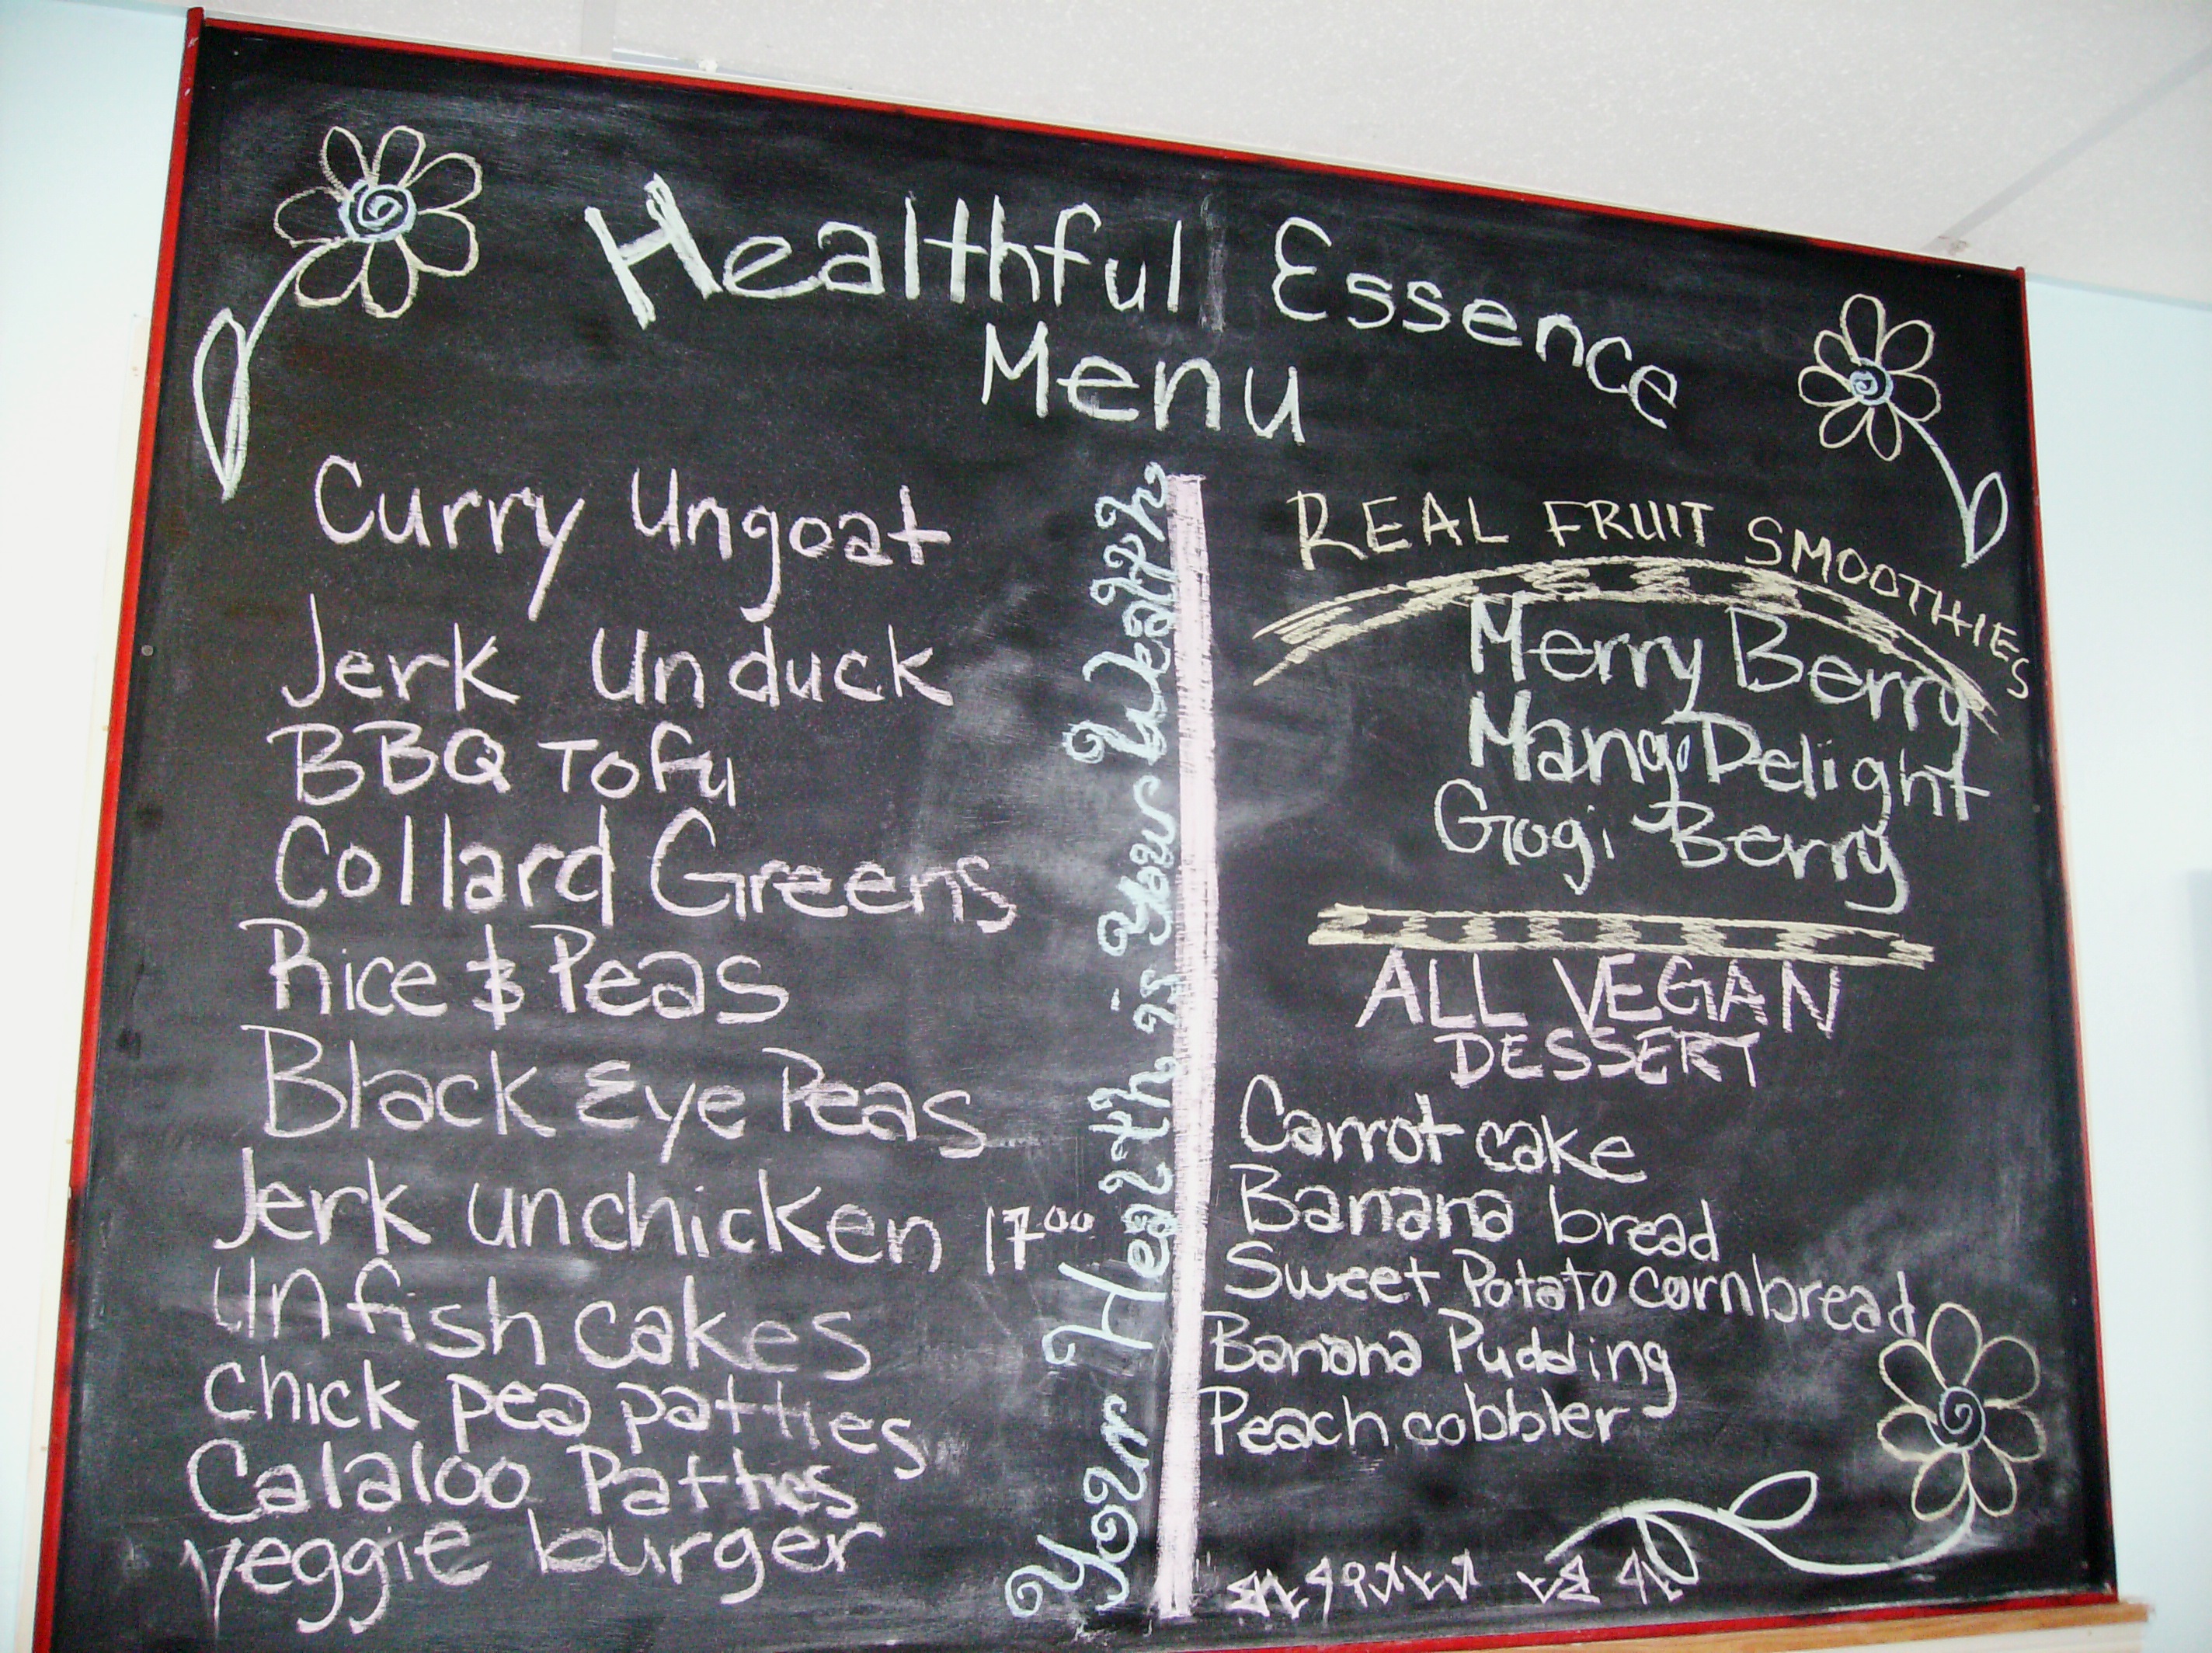 Healthful Essence
Menu
Curry Ungoat
Jerk Unduck
BBQ Tofu
Collard Greens
Rice & Peas
Black Eye Peas
Jerk unchicken 17.00
Unfish cakes
Chick pea patties
Calaloo Patties
veggie burger
Your Health is Your Wealth
REAL FRUIT SMOOTHIES
Merry Berry
Mango Delight
Gogi Berry
ALL VEGAN
DESSERT
Carrot cake
Banana bread
Sweet Potato cornbread
Banana Pudding
Peach cobbler